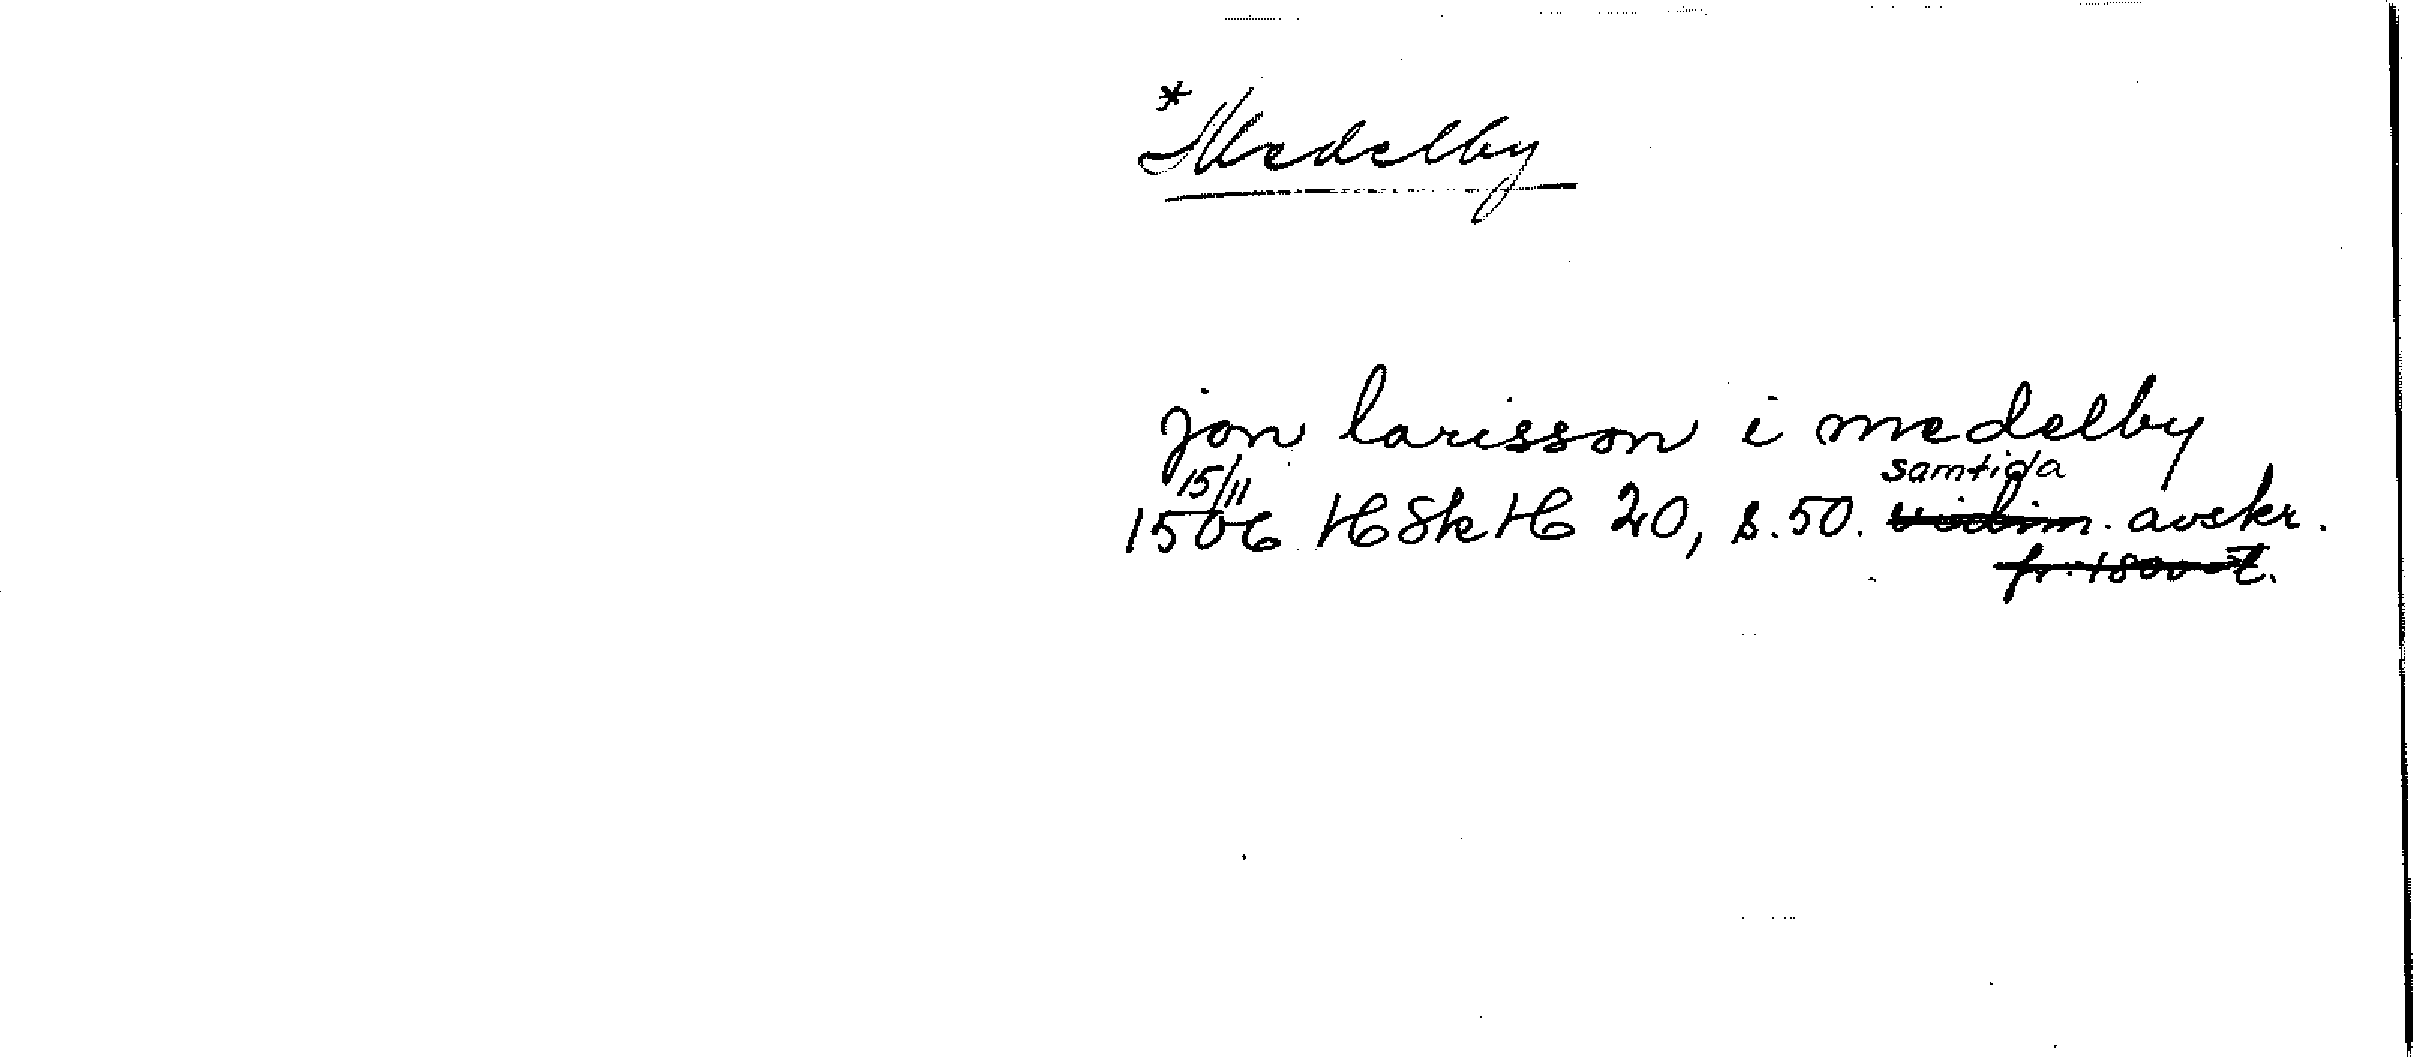 *Medelby
jon larisson i medelby
15/11 samtida
1506 HSkH 20, s. 50. vidim. avskr.
fr. 1800-t.